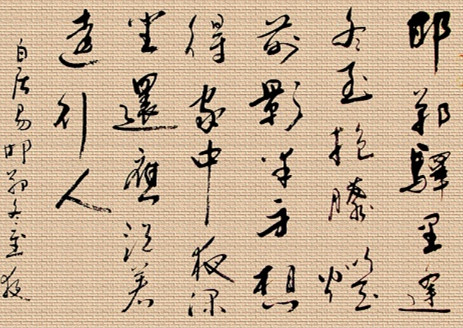 邯鄲驛里逢
冬至抱膝燈
前影伴身想
得家中夜深
坐還應説着
遠行人
白居易邯鄲冬至夜